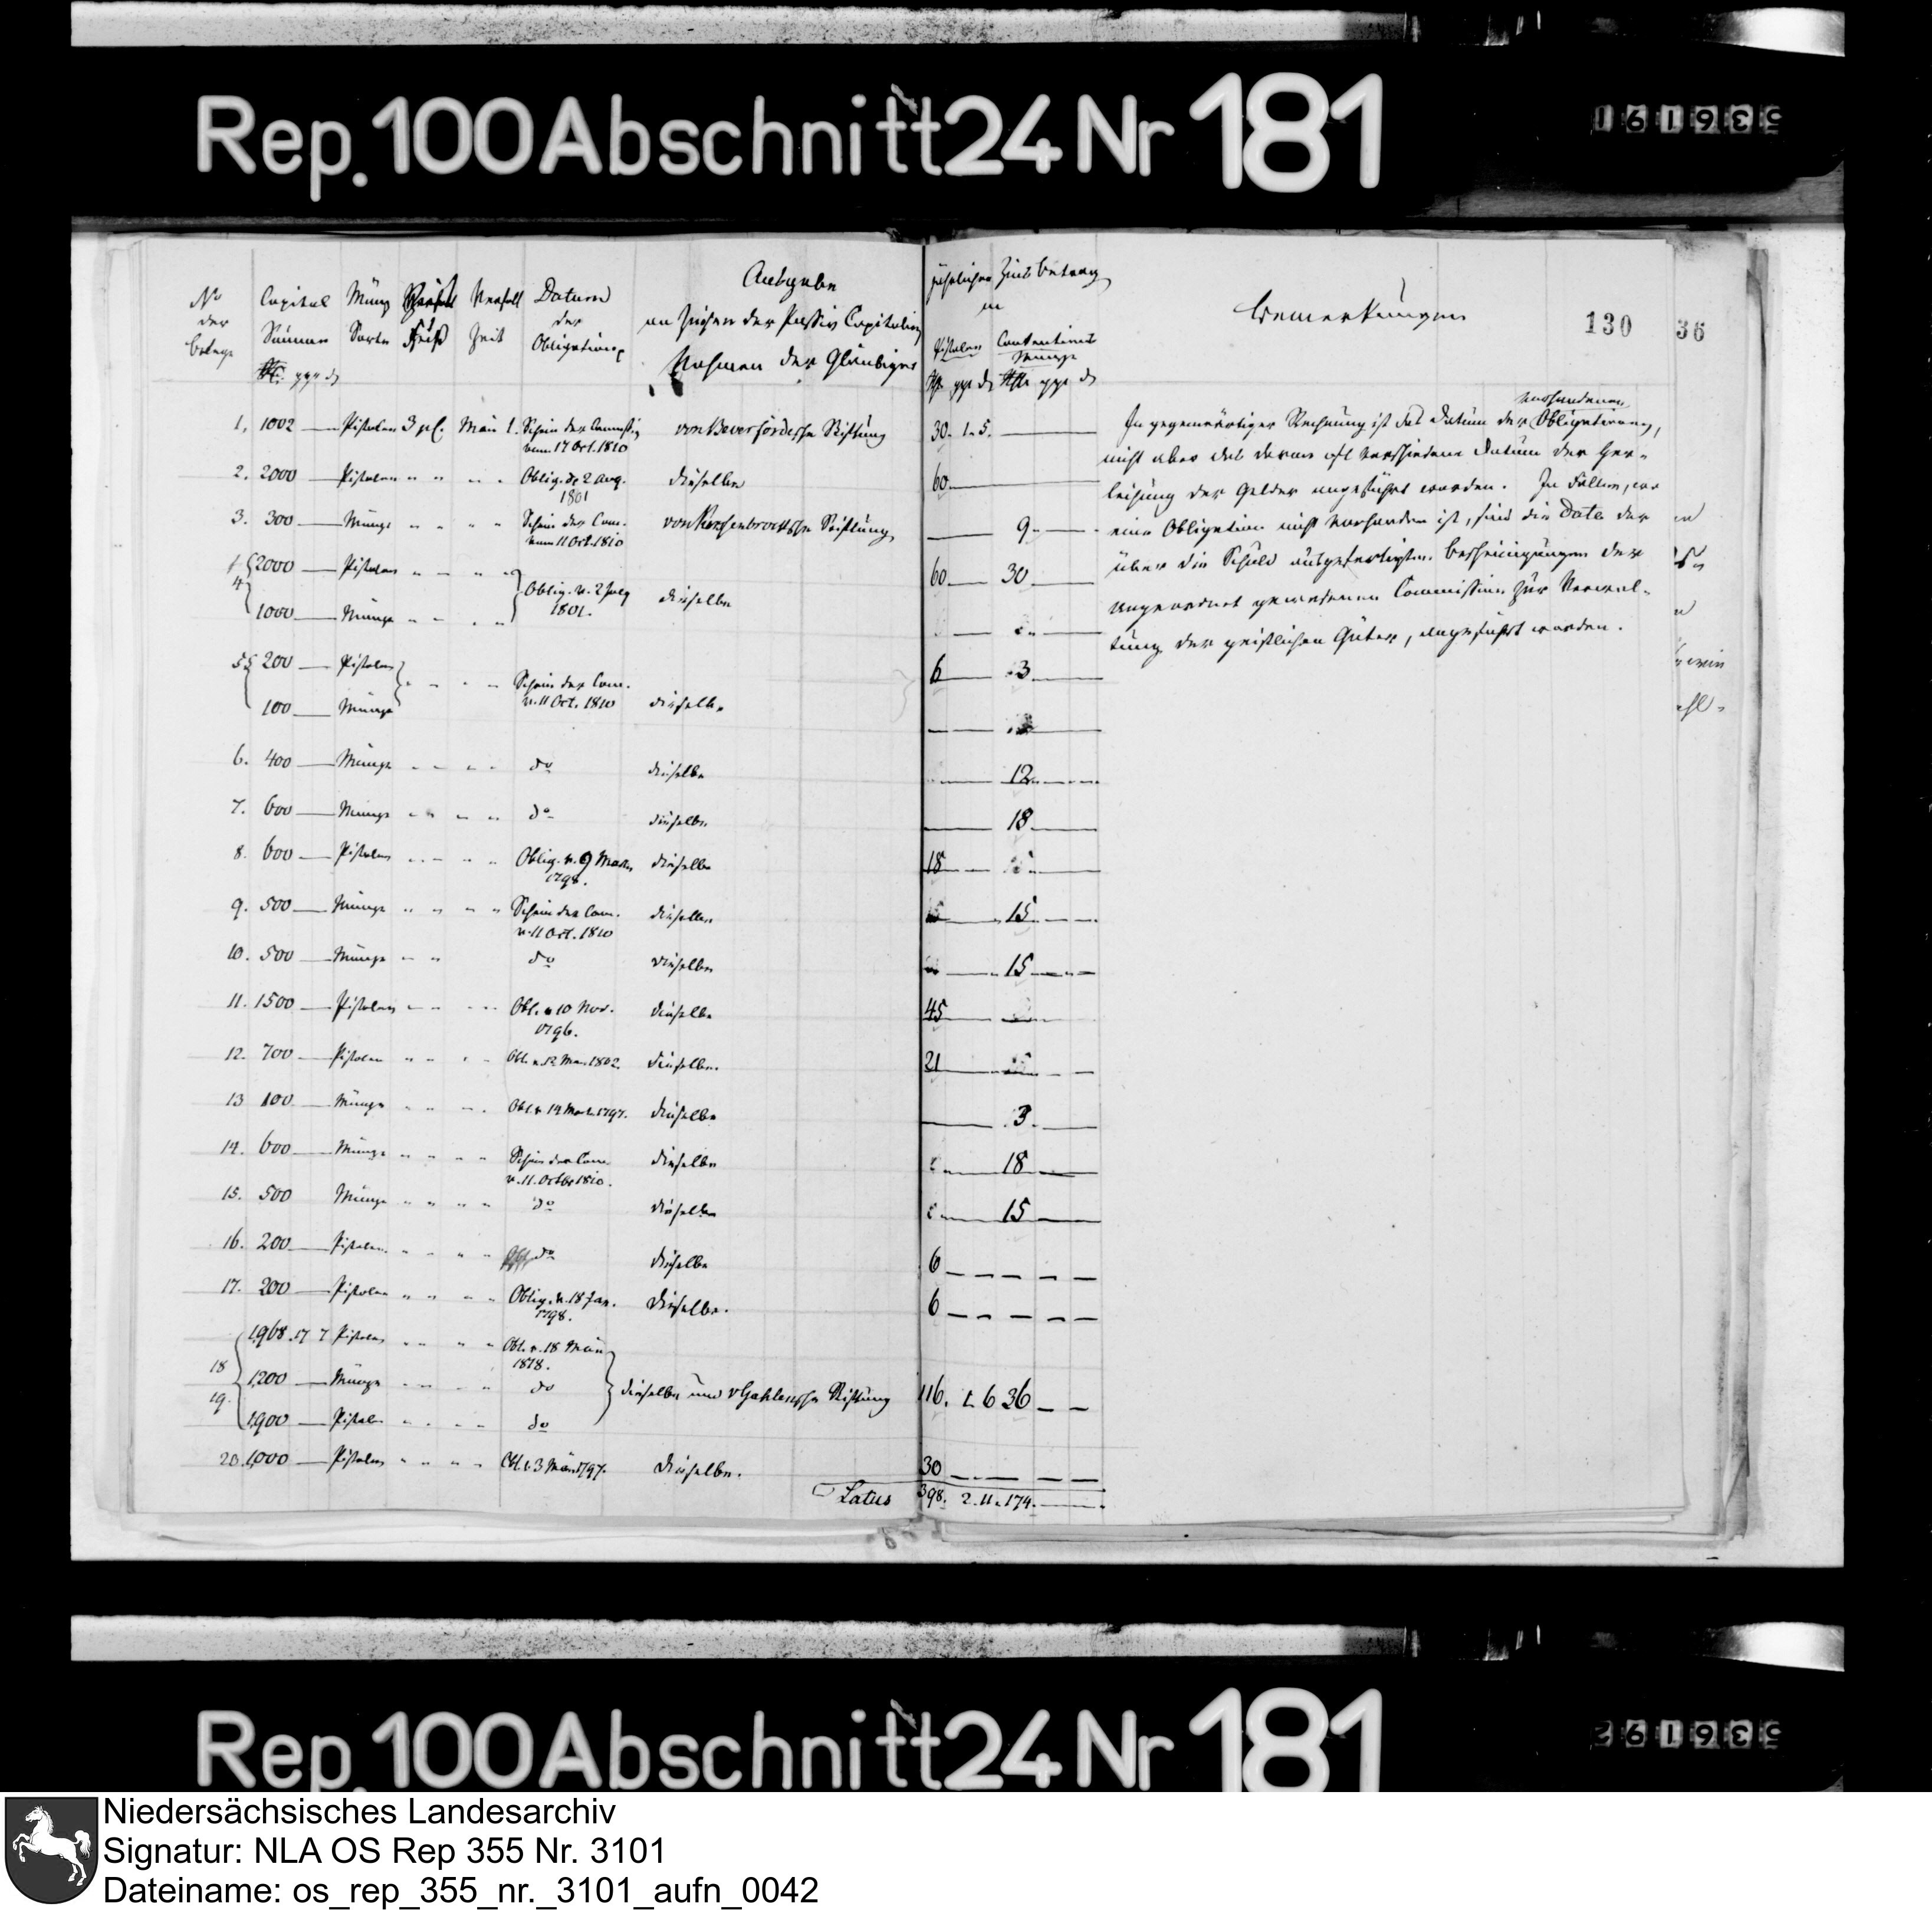 Rep. 100 Abschnitt 24 Nr 181
536191
Ausgabe
an Zinsen der Passiv Capitalien
No der belege
Capital Summen
Münz Sorte
Zins Fuß
Verfall Zeit
Datum der Obligation
Nahmen der Gläubiger
jährlicher Zins betrag
in
Pistolen
Conventions Münze
Bemerkungen
130
36
1, 1002 — Pistolen 3 pC. Mai 1. Schein der Commission vom 17 Oct. 1810 von Beverfördesche Stiftung 30. 1. 5. —
2. 2000 — Pistolen " " " " Oblig. de 2 Aug. 1801 dieselbe 60 —
3. 300 — Münze " " " " Schein der Com. vom 11 Oct. 1810 Stiftung — 9 —
4 2000 — Pistolen " " " " Oblig. v. 2 July 1801. dieselbe 60 — 30 —
1000 — Münze " " " "
5 200 — Pistolen " " " " Schein der Com. v. 11 Oct. 1810 dieselbe 6 — 3 —
100 — Münze
6. 400 — Münze " " " " do dieselbe — 12 —
7. 600 — Münze " " " " do dieselbe — 18 —
8. 600 — Pistolen " " " " Oblig. v. 9 1798. dieselbe 18 —
9. 500 — Münze " " " " Schein der Com. v. 11 Oct. 1810 dieselbe — 15 —
10. 500 — Münze " " do dieselbe — 15 —
11. 1500 — Pistolen " " " " Obl. v 10 Nov. 1796. dieselbe 45 —
12. 700 — Pistolen " " " " Obl. v. 12 1802. dieselbe. 21 —
13 100 — Münze " " " " Obl. v. 1797. dieselbe — 3. —
14. 600 — Münze " " " " Schein der Com. v. 11. Octbr 1810. dieselbe — 18 —
15. 500 Münze " " " " do dieselbe — 15 —
16. 200 — Pistolen " " " " do dieselbe 6 — — — — —
17. 200 — Pistolen " " " " Oblig. v. 18 Jan. 1798. dieselbe. 6 — — — — —
18 19. 1968. 17 7 Pistolen " " " " Obl. v. 18 1818. dieselbe und v Gahlensche Stiftung 116. 1. 6 36 — —
1200 — Münze " " " " do
1900 — Pistol. " " " " do
20. 1000 — Pistolen " " " " Obl. v. 3 1797. dieselbe. 30 — — — —
Latus 398. 2. 11. 174. —
In gegenwärtiger Rechnung ist das Datum der vorhandenen Obligationen,
nicht aber das davon oft verschiedene Datum der Ver-
leihung der Gelder angeführt worden. In Fällen, wo
eine Obligation nicht vorhanden ist, sind die Data der
über die Schuld ausgefertigten Bescheinigungen der
angeordnet gewesenen Commission zur Verwal-
tung der geistlichen Güter, angeführt worden.
Rep. 100 Abschnitt 24 Nr 181
536192
Niedersächsisches Landesarchiv
Signatur: NLA OS Rep 355 Nr. 3101
Dateiname: os_rep_355_nr._3101_aufn_0042